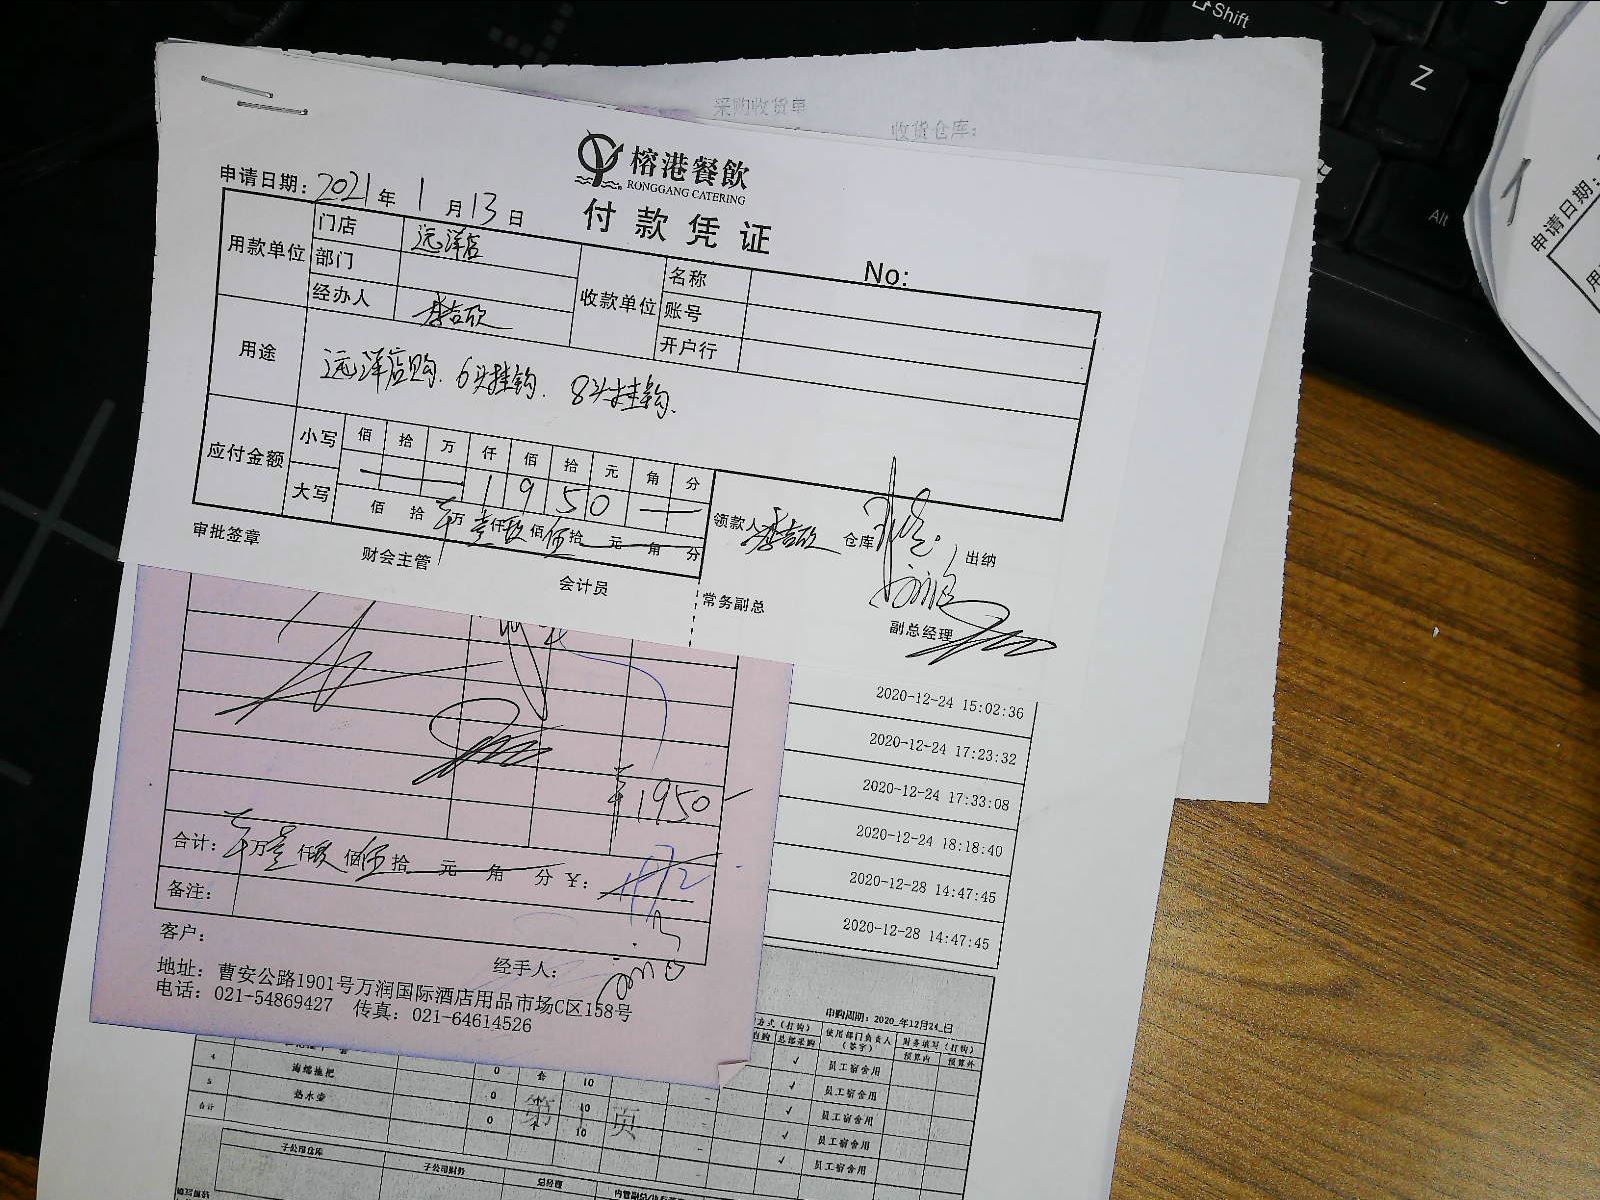 Shift
Z
Alt
采购收货单
收货仓库:
榕港餐飲
RONGGANG CATERING
申请日期: 2021年 1月 13日
付款凭证
No:
用款单位
门店 远洋店
部门
经办人 李吉欣
收款单位
名称
账号
开户行
用途 远洋店购、6头挂钩、8头挂钩、
应付金额
小写 佰 拾 万 仟 佰 拾 元 角 分
1 9 5 0
大写 佰 拾 万 壹仟玖佰伍拾 元 角 分
领款人 李吉欣 仓库 出纳
审批签章 财会主管 会计员 常务副总 副总经理
申请日期:
2020-12-24 15:02:36
2020-12-24 17:23:32
2020-12-24 17:33:08
2020-12-24 18:18:40
2020-12-28 14:47:45
2020-12-28 14:47:45
¥1950
合计: 万壹仟玖佰伍拾 元 角 分 ¥:
备注:
客户: 经手人:
地址: 曹安公路1901号万润国际酒店用品市场C区158号
电话: 021-54869427 传真: 021-64614526
申购周期: 2020 年12月24 日
方式(打钩) 使用部门负责人(签字) 财务填写(打钩)
总部采购 预算内 预算外
0 套 10 ✓ 员工宿舍用
4 海绵拖把 0 10 ✓ 员工宿舍用
5 热水壶 0 10 ✓ 员工宿舍用
合计 0 10 ✓ 员工宿舍用
✓ 员工宿舍用
第 1 页
子公司仓库 子公司财务 总经理